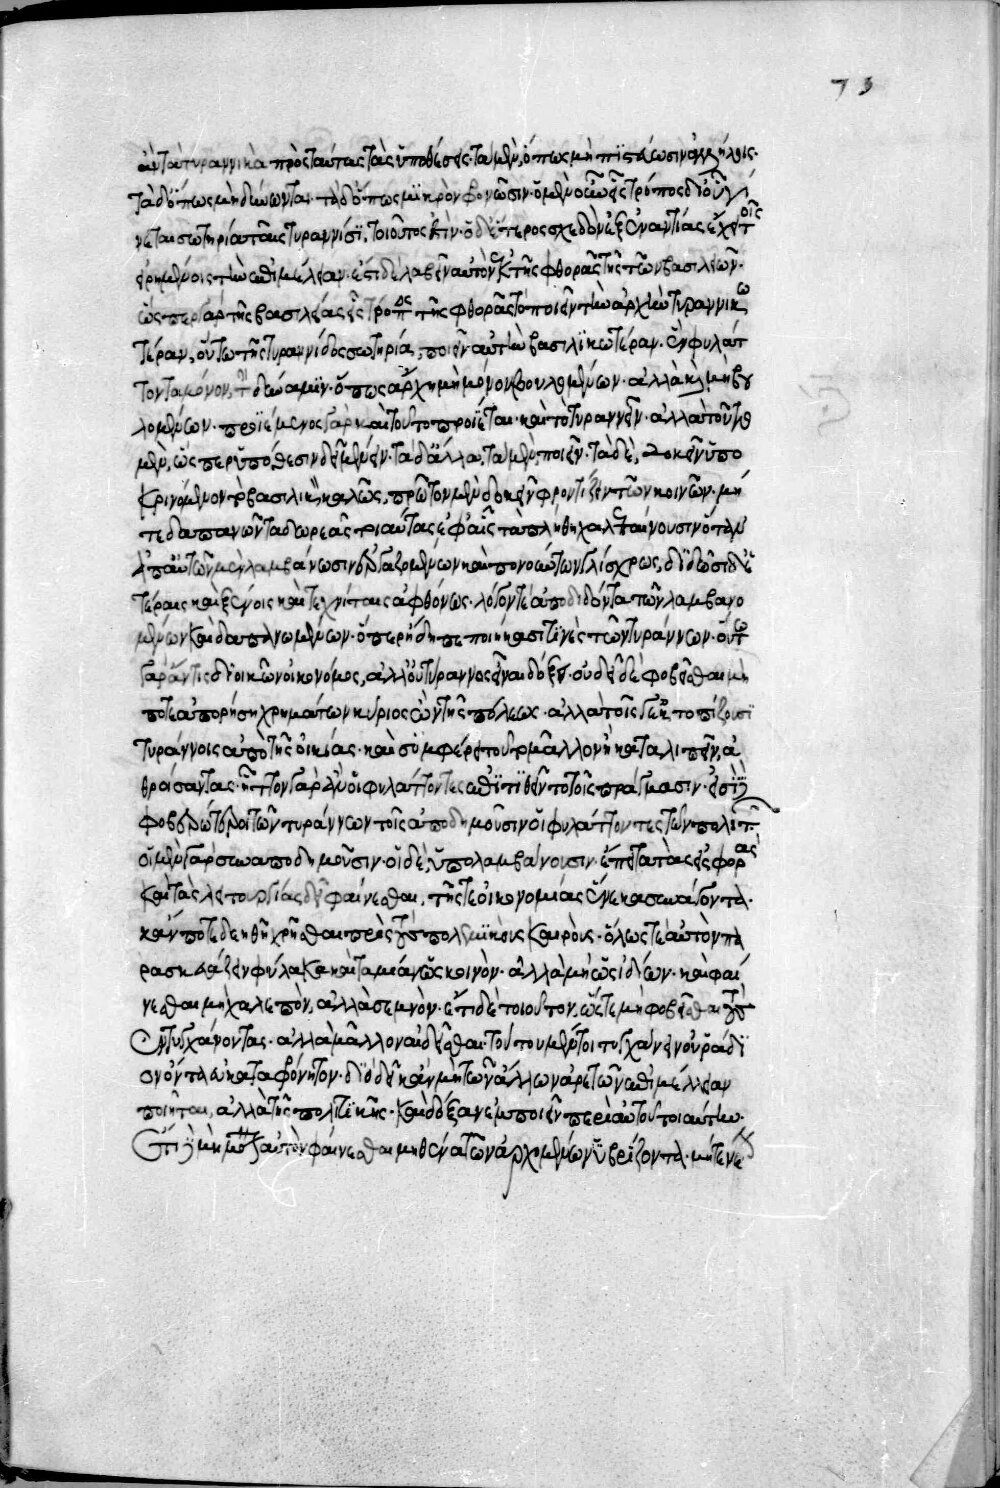 73
ἀν τὰ τυραννικὰ πρὸς ταύτας τὰς ὑποθέσεις· τὰ μὲν, ὅπως μὴ πιστεύωσιν ἀλλήλοις·
τὰ δ' ὅπως μὴ δύνωνται· τὰ δ' ὅπως μικρὸν φρονῶσιν· ὁ μὲν οὖν εἷς τρόπος δι' οὗ γί
νεται σωτηρία ταῖς τυραννίσι, τοιοῦτος ἐστίν· ὁ δ' ἕτερος σχεδὸν ἐξ ἐναντίας ἔχει τοῖς
εἰρημένοις τὴν ἐπιμέλειαν· ἔστι δὲ λαβεῖν αὐτὸν ἐκ τῆς φθορᾶς τῆς τῶν βασιλειῶν·
ὥσπερ γὰρ τῆς βασιλείας εἷς τρόπος τῆς φθορᾶς τὸ ποιεῖν τὴν ἀρχὴν τυραννικω
τέραν, οὕτω τῆς τυραννίδος σωτηρία, ποιεῖν αὐτὴν βασιλικωτέραν· ἓν φυλάτ
τοντα μόνον, τὴν δύναμιν· ὅπως ἄρχῃ μὴ μόνον βουλομένων· ἀλλὰ καὶ μὴ βου
λομένων· προϊέμενος γὰρ καὶ τοῦτο προΐεται· καὶ τὸ τυραννεῖν· ἀλλὰ τοῦτο
μὲν, ὥσπερ ὑπόθεσιν δεῖ μένειν· τὰ δ' ἄλλα, τὰ μὲν, ποιεῖν· τὰ δὲ, δοκεῖν ὑπο
κρινόμενον τὸ βασιλικὸν καλῶς, πρῶτον μὲν δοκεῖν φροντίζειν τῶν κοινῶν· μή
τε δαπανῶντα δωρεὰς τοιαύτας ἐφ' αἷς τὰ πλήθη χαλεπαίνουσιν ὅταν
ἀπ' αὐτῶν μὲν λαμβάνωσιν ἐργαζομένων καὶ πονούντων γλίσχρως, διδῶσι δ' ἑ
ταίραις καὶ ξένοις καὶ τεχνίταις ἀφθόνως· λόγον τε ἀποδιδόντα τῶν λαμβανο
μένων καὶ δαπανωμένων· ὅπερ ἤδη πεποιήκασί τινες τῶν τυράννων· οὕτω
γὰρ ἄν τις διοικῶν οἰκονόμος, ἀλλ' οὐ τύραννος εἶναι δόξει· οὐ δεῖ δὲ φοβεῖσθαι μή
ποτε ἀπορήσῃ χρημάτων κύριος ὢν τῆς πόλεως· ἀλλὰ τοῖς γ' ἐκτοπίζουσι
τυράννοις ἀπὸ τῆς οἰκείας· καὶ συμφέρει τοῦτο μᾶλλον ἢ καταλιπεῖν, ἀ
θροίσαντας· ἧττον γὰρ ἂν οἱ φυλάττοντες ἐπιτιθεῖντο τοῖς πράγμασιν· εἰσὶ δὲ
φοβερώτεροι τῶν τυράννων τοῖς ἀποδημοῦσιν οἱ φυλάττοντες τῶν πολιτῶν·
οἱ μὲν γὰρ συναποδημοῦσιν· οἱ δὲ, ὑπολαμβάνουσιν· ἔπειτα τὰς εἰσφορὰς
καὶ τὰς λειτουργίας δεῖ φαίνεσθαι, τῆς τε οἰκονομίας ἕνεκα συνάγοντα·
κἄν ποτε δεηθῇ χρῆσθαι πρὸς τοὺς πολεμικοὺς καιρούς· ὅλως τε αὐτὸν πα
ρασκευάζειν φύλακα καὶ ταμίαν ὡς κοινῶν· ἀλλὰ μὴ ὡς ἰδίων· καὶ φαί
νεσθαι μὴ χαλεπὸν, ἀλλὰ σεμνὸν· ἔτι δὲ τοιοῦτον, ὥστε μὴ φοβεῖσθαι τοὺς
ἐντυγχάνοντας· ἀλλὰ μᾶλλον αἰδεῖσθαι· τούτου μέντοι τυγχάνειν οὐ ῥάδι
ον ὄντα εὐκαταφρόνητον· διὸ δεῖ κἂν μὴ τῶν ἄλλων ἀρετῶν ἐπιμέλειαν
ποιῆται, ἀλλὰ τῆς πολιτικῆς· καὶ δόξαν ἐμποιεῖν περὶ αὑτοῦ τοιαύτην·
ἔτι δὲ μὴ μόνον αὐτὸν φαίνεσθαι μηθένα τῶν ἀρχομένων ὑβρίζοντα· μήτε νέον